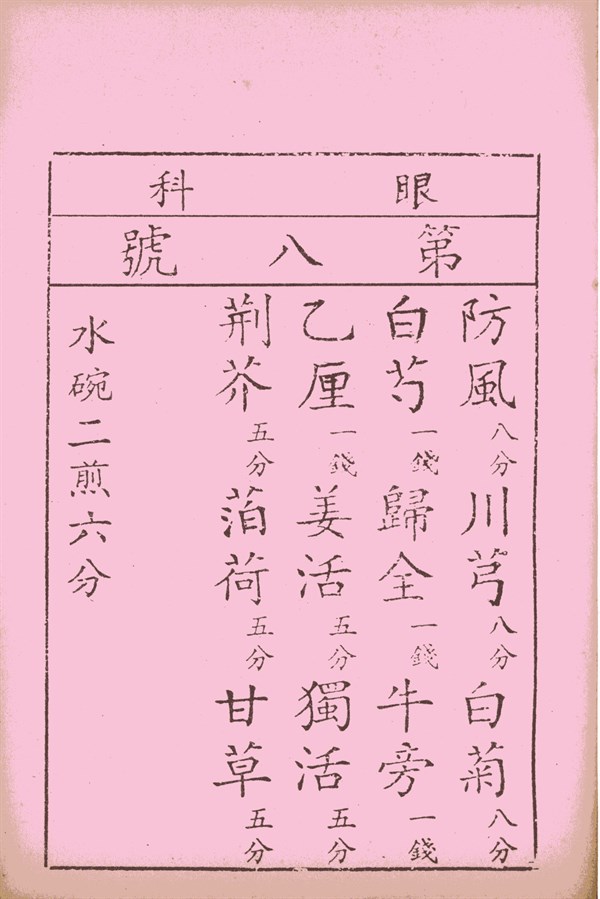 眼科
第八號
防風八分川芎八分白菊八分
白芍一錢歸全一錢牛旁一錢
乙厘一錢姜活五分獨活五分
荆芥五分萡荷五分甘草五分
水碗二煎六分